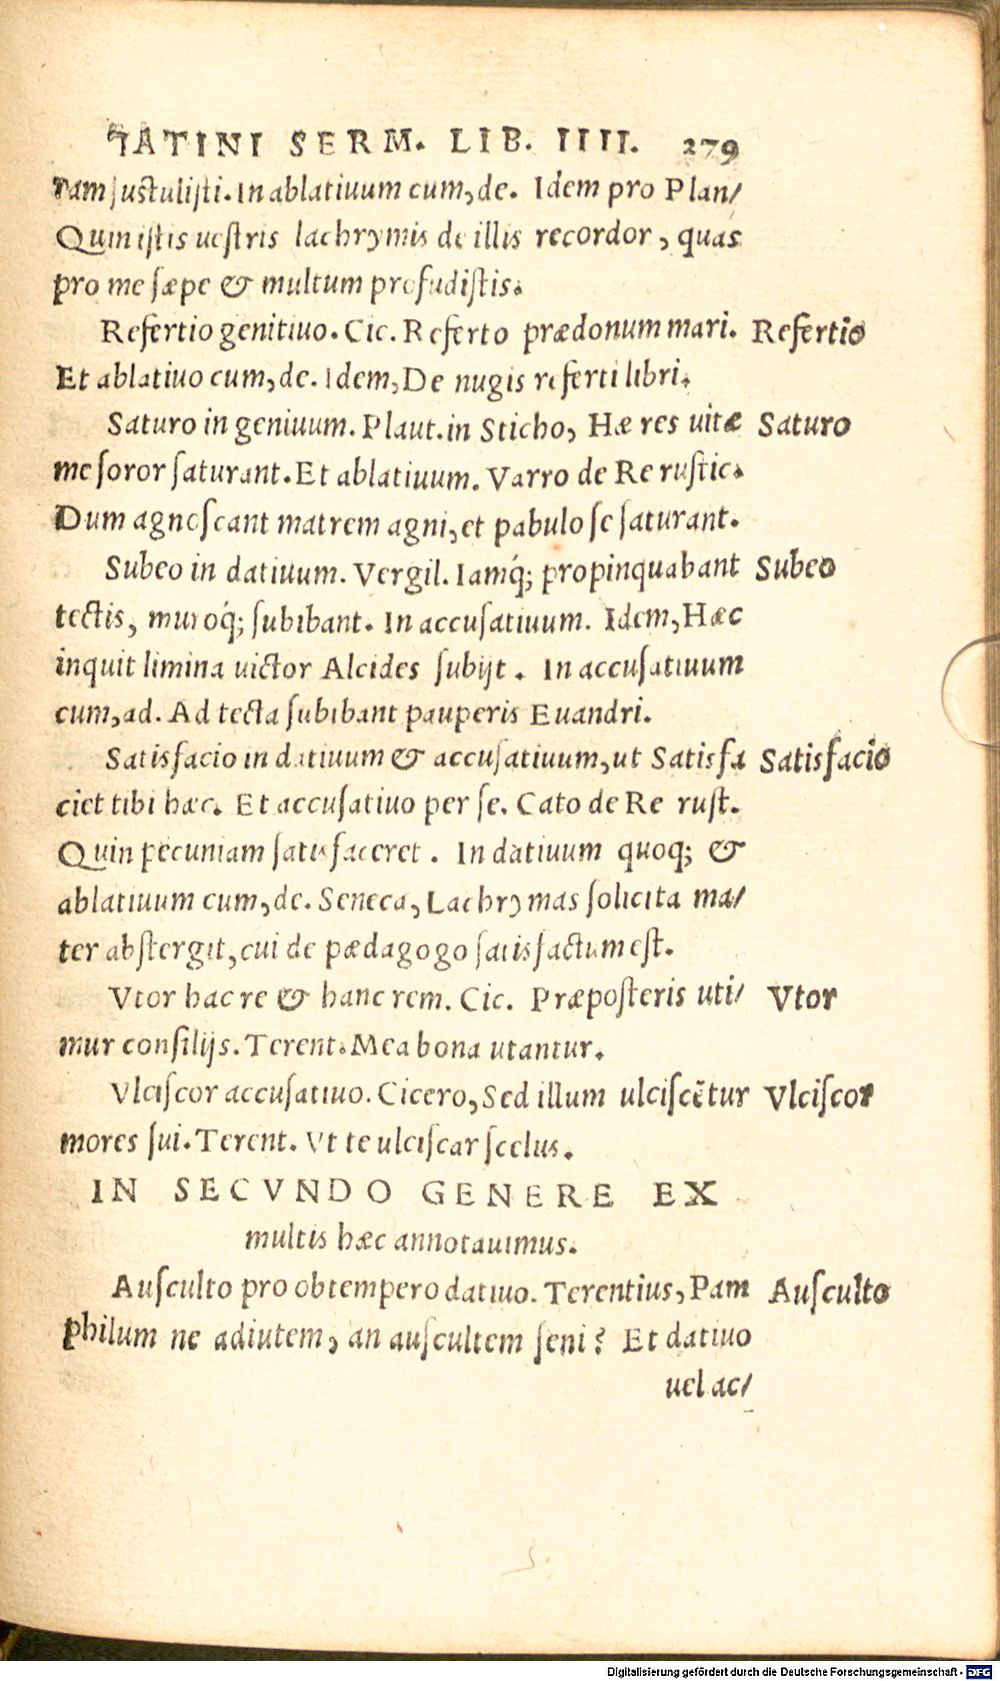 LATINI SERM. LIB. IIII. 279
ram sustulisti. In ablatiuum cum, de. Idem pro Plan/
Quin istis uestris lachrymis de illis recordor, quas
pro me sæpe & multum profudistis.
Refertio genitiuo. Cic. Referto prædonum mari. Refertio
Et ablatiuo cum, de. Idem, De nugis referti libri.
Saturo in geniuum. Plaut. in Sticho, Hæ res uitæ Saturo
me soror saturant. Et ablatiuum. Varro de Re rustic.
Dum agnoscant matrem agni, et pabulo se saturant.
Subeo in datiuum. Vergil. Iamq́; propinquabant Subeo
tectis, muroq́; subibant. In accusatiuum. Idem, Hæc
inquit limina uictor Alcides subijt. In accusatiuum
cum, ad. Ad tecta subibant pauperis Euandri.
Satisfacio in datiuum & accusatiuum, ut Satisfa Satisfacio
ciet tibi hæc. Et accusatiuo per se. Cato de Re rust.
Quin pecuniam satisfaceret. In datiuum quoq; &
ablatiuum cum, de. Seneca, Lachrymas solicita ma/
ter abstergit, cui de pædagogo satisfactum est.
Vtor hac re & hanc rem. Cic. Præposteris uti/ Vtor
mur consilijs. Terent. Mea bona utantur.
Vlciscor accusatiuo. Cicero, Sed illum ulciscẽtur Vlciscor
mores sui. Terent. Vt te ulciscar scelus.
IN SECVNDO GENERE EX
multis hæc annotauimus.
Ausculto pro obtempero datiuo. Terentius, Pam Ausculto
philum ne adiutem, an auscultem seni? Et datiuo
uel ac/
Digitalisierung gefördert durch die Deutsche Forschungsgemeinschaft - DFG